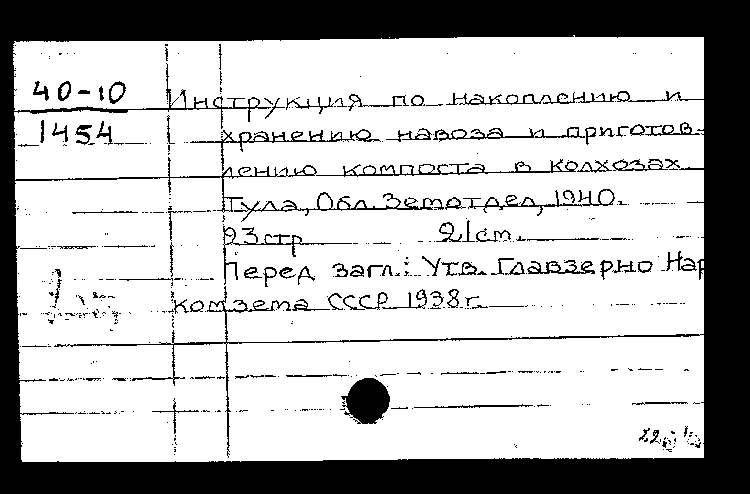 40-10
1454
Инструкция по накоплению и
хранению навоза и приготов-
лению компоста в колхозах
Тула, Обл. Земотдел, 1940.
23 стр 21 см.
Перед загл.: Утв. Главзерно Нар
комзема СССР 1938 г.